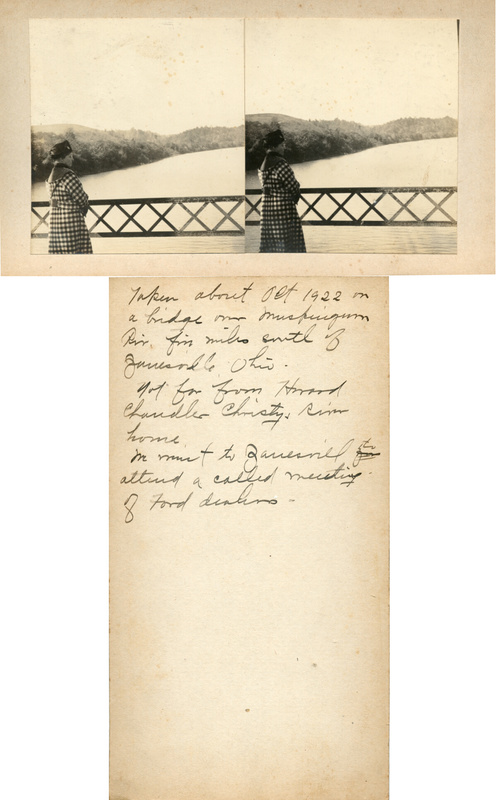 Taken about Oct 1922 on
a bridge over Muskingum
Riv. five miles south of
Zanesville, Ohio.
Not far from Howard
Chandler Christy, River
home
We went to Zanesvill to
attend a called meeting
of Ford dealers -